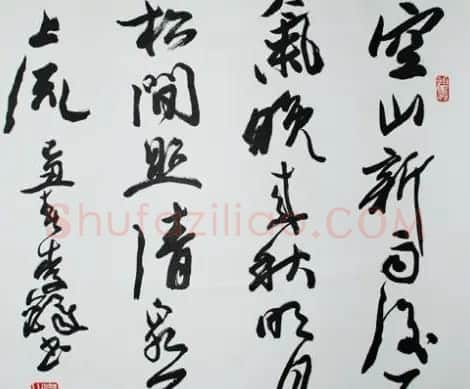 空山新雨後
氣晚来秋明月
松間照清泉
上流
Shufaziliao.COM